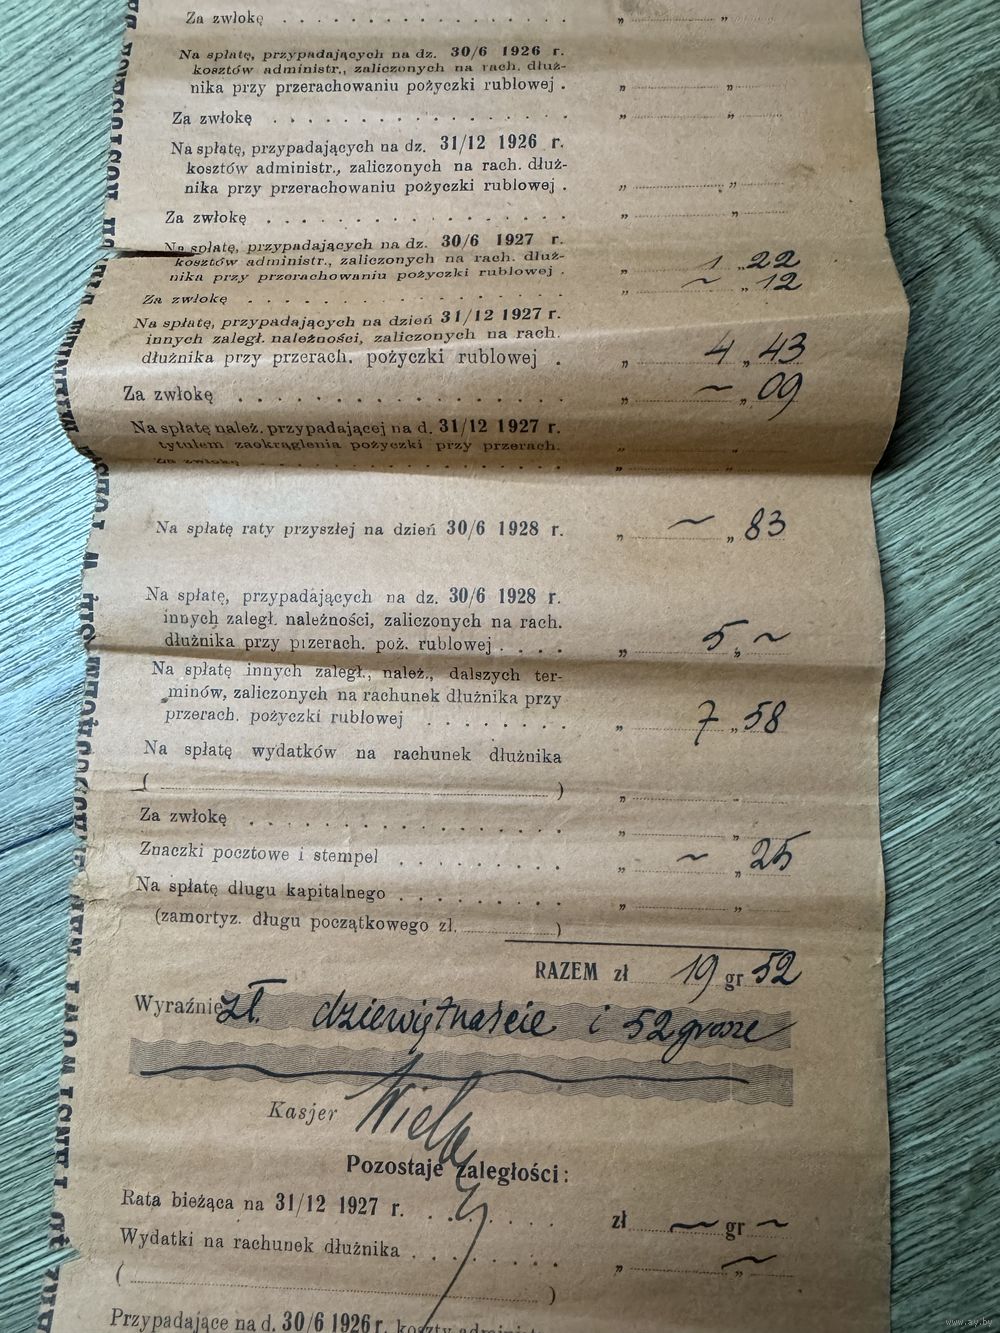 Za zwłokę . . . . . . . . . . . . „ „
Na spłatę, przypadających na dz. 30/6 1926 r.
kosztów administr., zaliczonych na rach. dłuż-
nika przy przerachowaniu pożyczki rublowej . „ „
Za zwłokę . . . . . . . . . . . . „ „
Na spłatę, przypadających na dz. 31/12 1926 r.
kosztów administr., zaliczonych na rach. dłuż-
nika przy przerachowaniu pożyczki rublowej . „ „
Za zwłokę . . . . . . . . . . . . „ „
Na spłatę, przypadających na dz. 30/6 1927 r.
kosztów administr., zaliczonych na rach. dłuż-
nika przy przerachowaniu pożyczki rublowej . „ 1 „ 22
Za zwłokę . . . . . . . . . . . . „ ~ „ 12
Na spłatę, przypadających na dzień 31/12 1927 r.
innych zaległ. należności, zaliczonych na rach.
dłużnika przy przerach. pożyczki rublowej . „ 4 „ 43
Za zwłokę . . . . . . . . . . . . „ ~ „ 09
Na spłatę należ. przypadającej na d. 31/12 1927 r.
tytułem zaokrąglenia pożyczki przy przerach. „ „
Za zwłokę . . . . . . . . . . . . „ „
Na spłatę raty przyszłej na dzień 30/6 1928 r. „ ~ „ 83
Na spłatę, przypadających na dz. 30/6 1928 r.
innych zaległ. należności, zaliczonych na rach.
dłużnika przy przerach. poż. rublowej . . . . „ 5 „ ~
Na spłatę innych zaległ., należ., dalszych ter-
minów, zaliczonych na rachunek dłużnika przy
przerach. pożyczki rublowej . . . . . . . „ 7 „ 58
Na spłatę wydatków na rachunek dłużnika
( ) „ „
Za zwłokę . . . . . . . . . . . . „ „
Znaczki pocztowe i stempel . . . . . . . . „ ~ „ 25
Na spłatę długu kapitalnego . . . . . . . . „ „
(zamortyz. długu początkowego zł. )
RAZEM zł 19 gr 52
Wyraźnie zł. dziewiętnaście i 52 grosze
Kasjer
Pozostaje zaległości:
Rata bieżąca na 31/12 1927 r. . . . . . . . zł ~ gr ~
Wydatki na rachunek dłużnika . . . . . . . „ „ ~
( )
Przypadające na d. 30/6 1926 r. koszty
www.ay.by